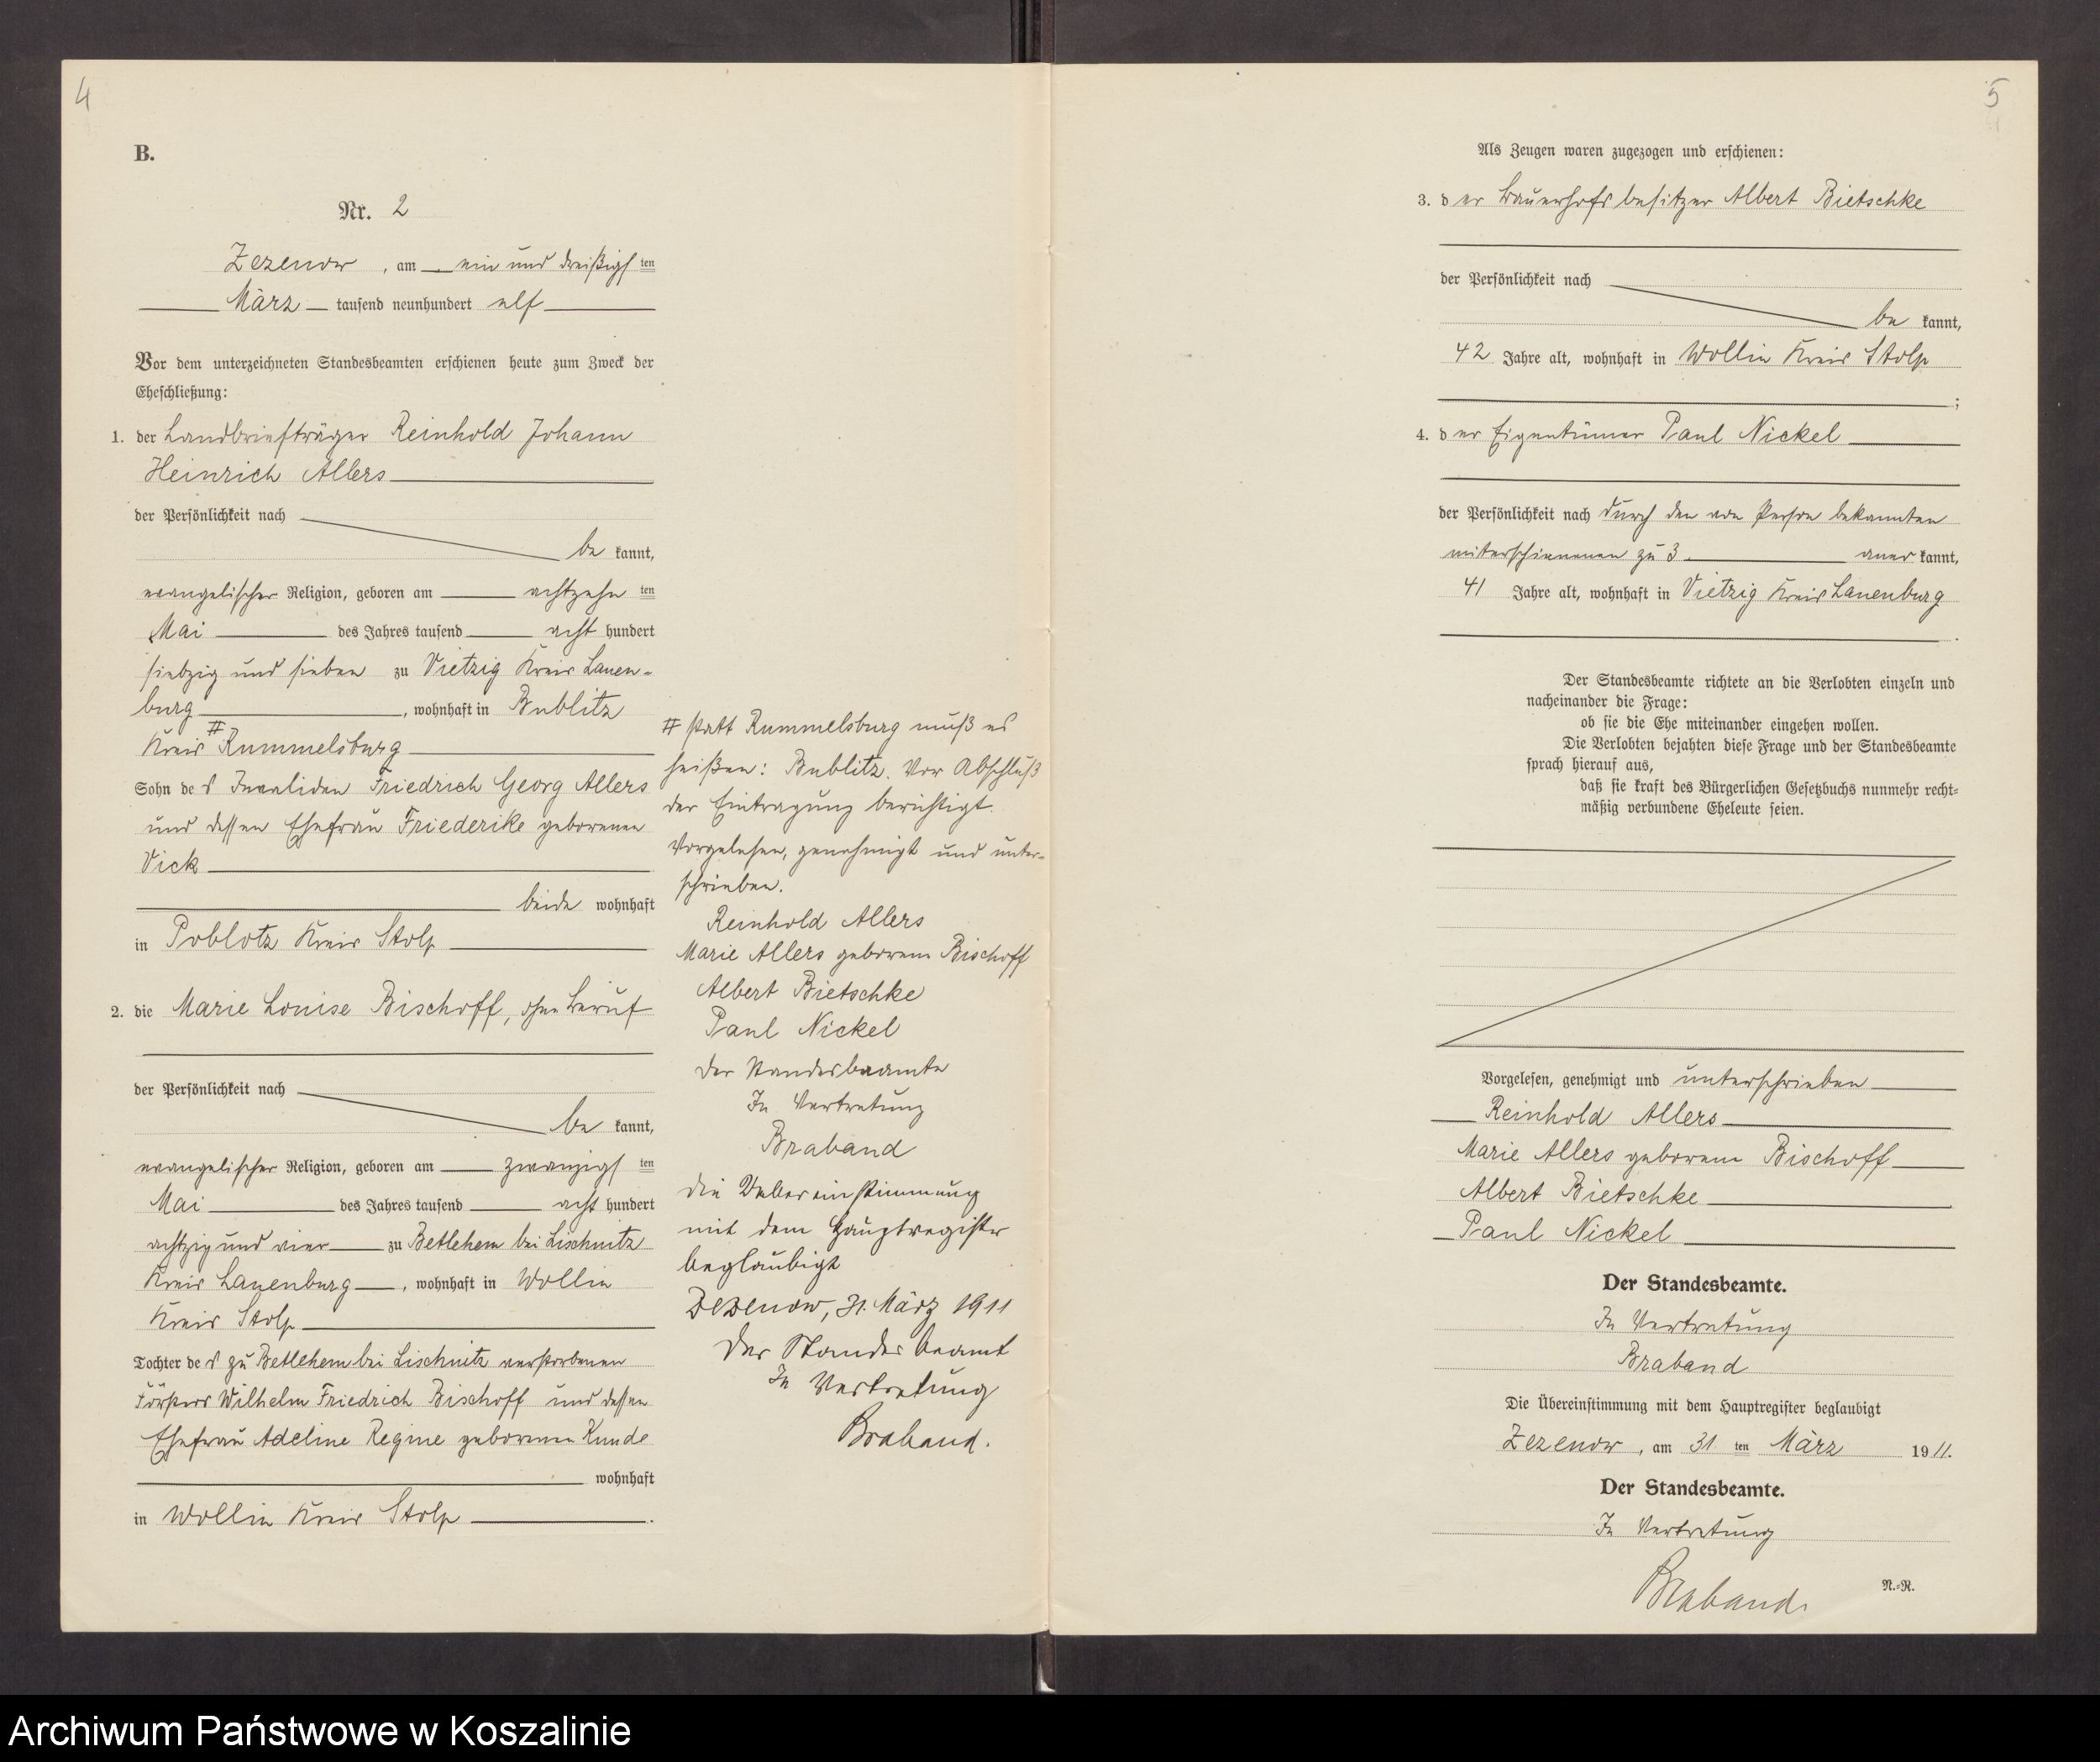 4
B.
Nr. 2
Zezenow, am ein und dreißigsten
März tausend neunhundert elf
Vor dem unterzeichneten Standesbeamten erschienen heute zum Zweck der
Eheschließung:
1. der Landbriefträger Reinhold Johann
Heinrich Allers
der Persönlichkeit nach
be kannt,
evangelischer Religion, geboren am achtzehn ten
Mai des Jahres tausend acht hundert
siebzig und sieben zu Vietzig Kreis Lauen-
burg, wohnhaft in Bublitz
Kreis # Rummelsburg
Sohn des Invaliden Friedrich Georg Allers
und dessen Ehefrau Friederike geborenen
Vick
beide wohnhaft
in Poblotz Kreis Stolp
2. die Marie Louise Bischoff, ohne Beruf
der Persönlichkeit nach
be kannt,
evangelischer Religion, geboren am zwanzigs ten
Mai des Jahres tausend acht hundert
achtzig und vier zu Betlehem bei Lischnitz
Kreis Lauenburg, wohnhaft in Wollin
Kreis Stolp
Tochter des zu Betlehem bei Lischnitz verstorbenen
Försters Wilhelm Friedrich Bischoff und dessen
Ehefrau Adeline Regine geborenen Kunde
wohnhaft
in Wollin Kreis Stolp.
# statt Rummelsburg muß es
heißen: Bublitz. Vor Abschluß
der Eintragung berichtigt.
Vorgelesen, genehmigt und unter-
schrieben.
Reinhold Allers
Marie Allers geborene Bischoff
Albert Bietschke
Paul Nickel
Der Standesbeamte
In Vertretung
Braband
Die Uebereinstimmung
mit dem Hauptregister
beglaubigt
Zezenow, 31. März 1911
Der Standesbeamt
In Vertretung
Braband.
5
Als Zeugen waren zugezogen und erschienen:
3. der Bauerhofsbesitzer Albert Bietschke
der Persönlichkeit nach
be kannt,
42 Jahre alt, wohnhaft in Wollin Kreis Stolp
;
4. der Eigentümer Paul Nickel
der Persönlichkeit nach durch den von Person bekannten
miterschienenen zu 3 aner kannt,
41 Jahre alt, wohnhaft in Vietzig Kreis Lauenburg
.
Der Standesbeamte richtete an die Verlobten einzeln und
nacheinander die Frage:
ob sie die Ehe miteinander eingehen wollen.
Die Verlobten bejahten diese Frage und der Standesbeamte
sprach hierauf aus,
daß sie kraft des Bürgerlichen Gesetzbuchs nunmehr recht-
mäßig verbundene Eheleute seien.
Vorgelesen, genehmigt und unterschrieben
Reinhold Allers
Marie Allers geborene Bischoff
Albert Bietschke
Paul Nickel
Der Standesbeamte.
In Vertretung
Braband
Die Übereinstimmung mit dem Hauptregister beglaubigt
Zezenow, am 31 ten März 1911.
Der Standesbeamte.
In Vertretung
Braband.
N.=R.
Archiwum Państwowe w Koszalinie